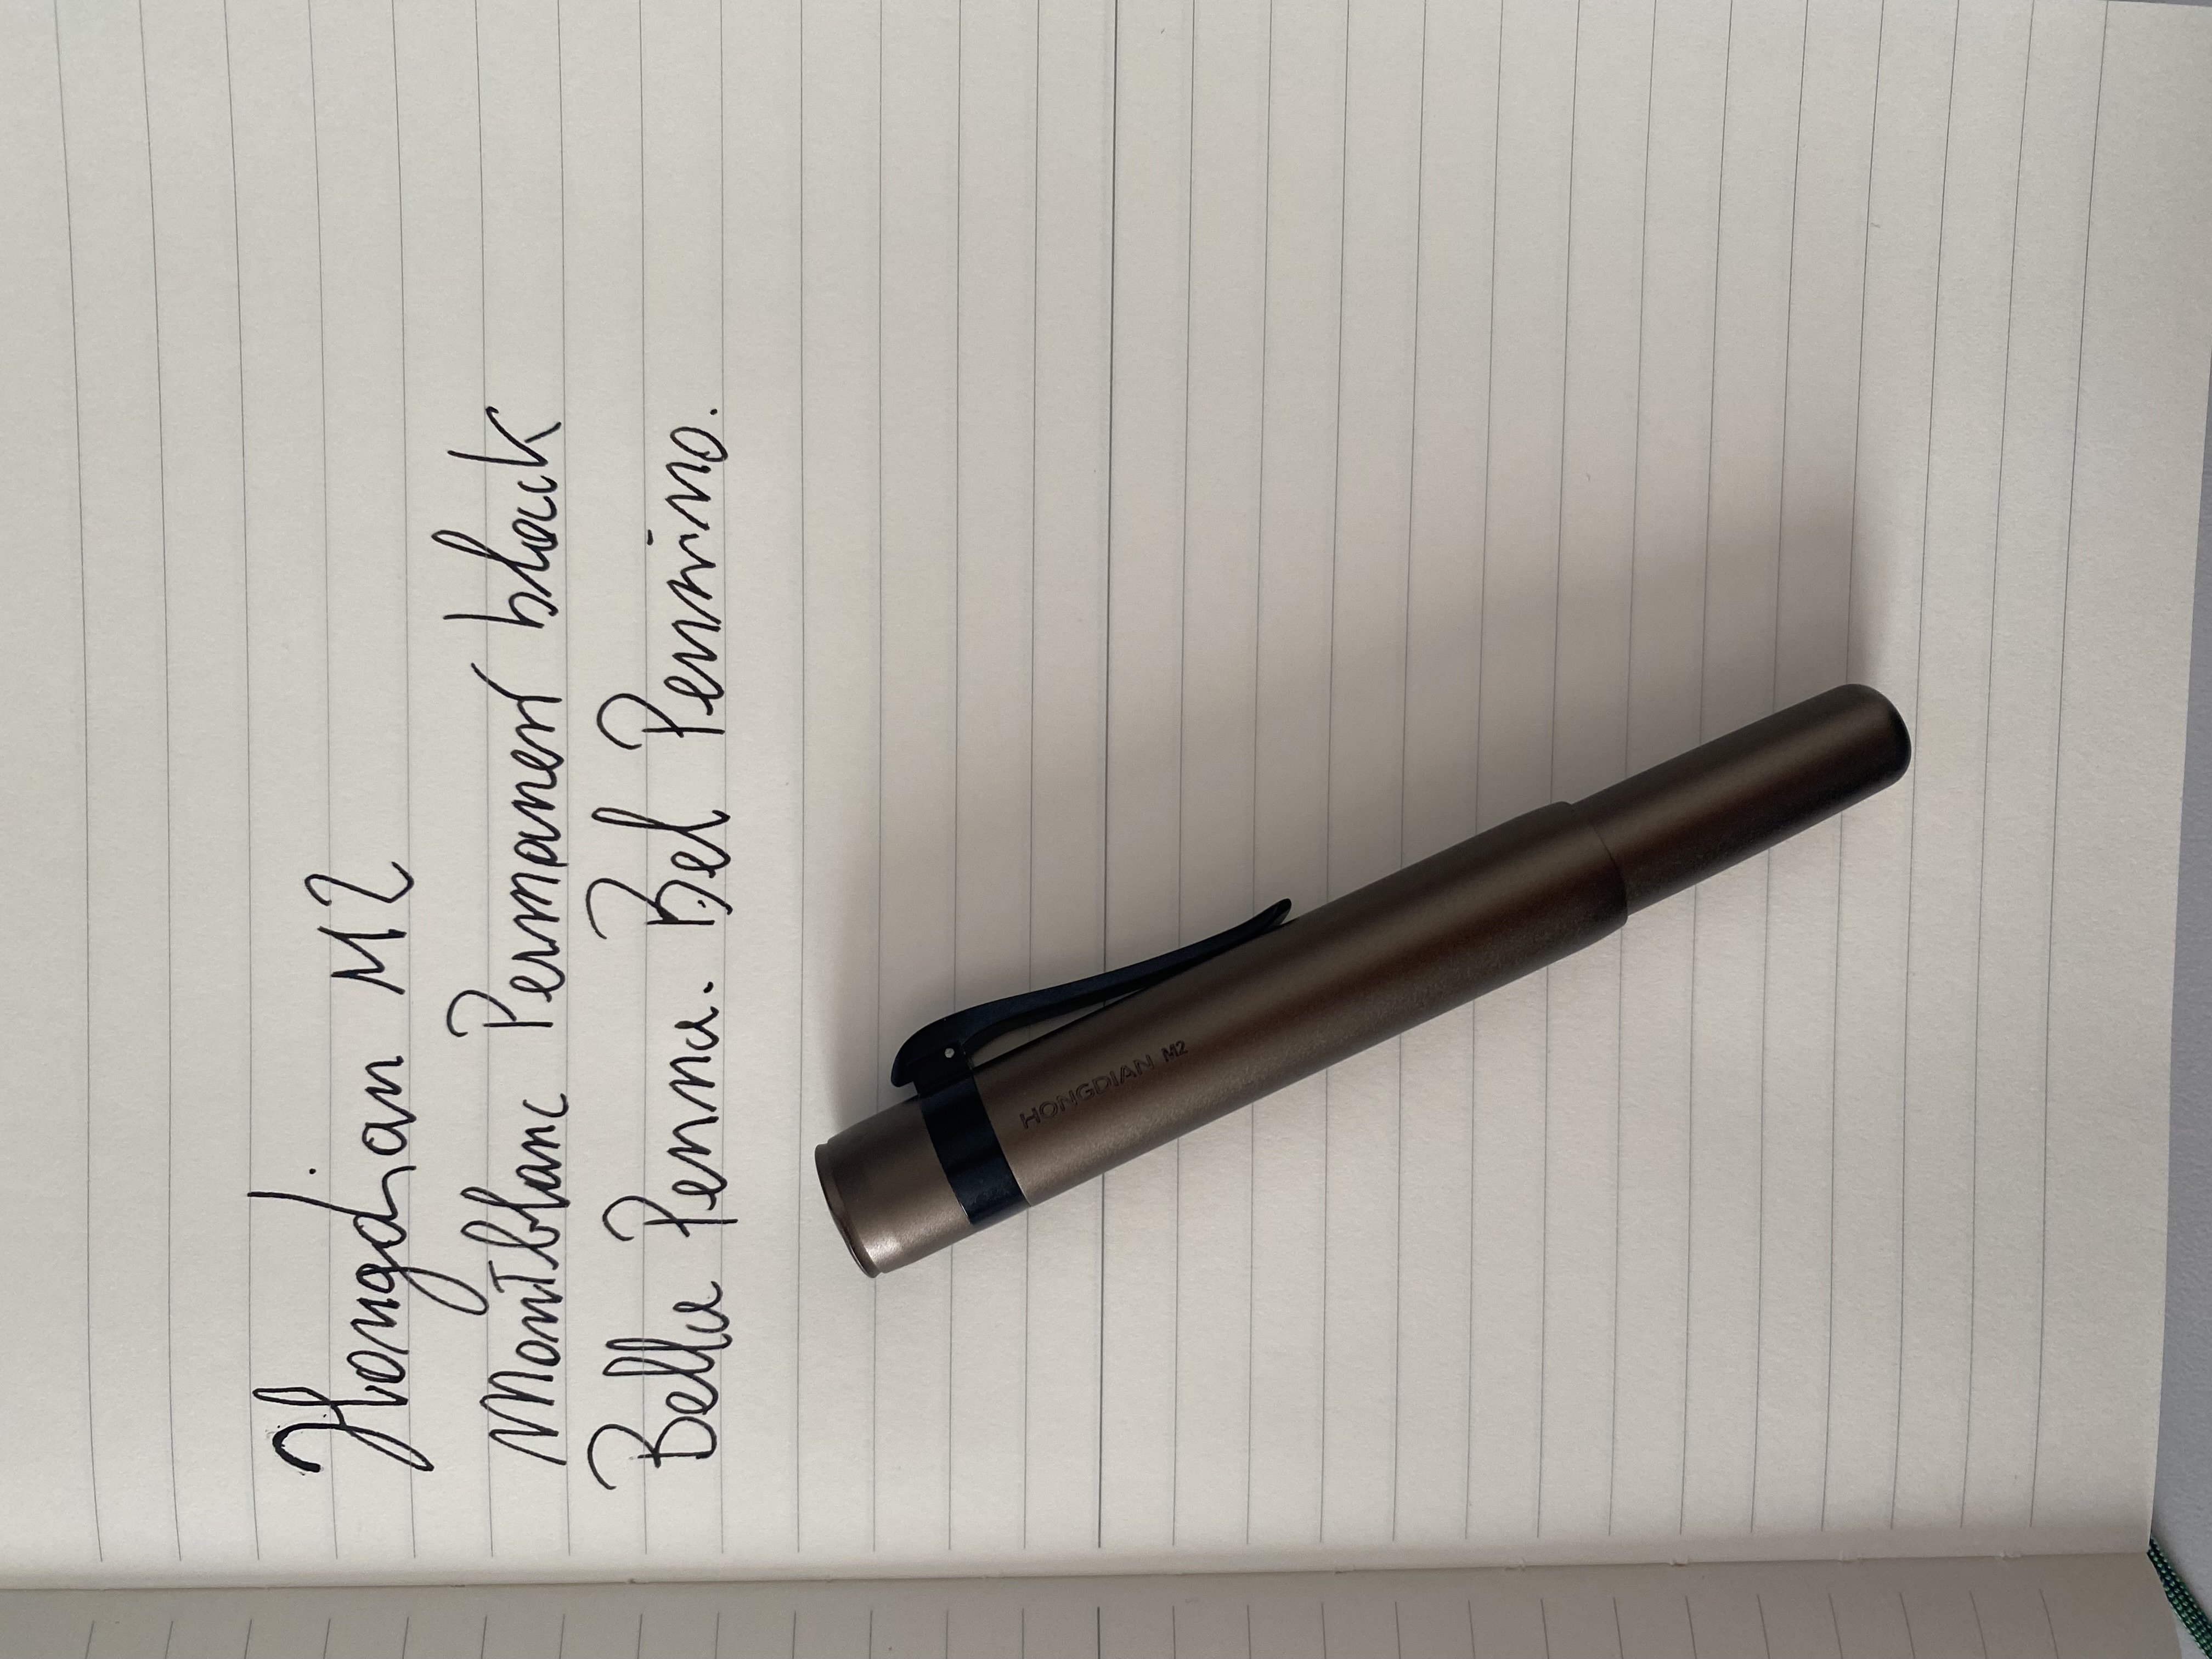 Hongdian M2
Montblanc Permanent black
Bella Penna. Bel Pennino.
HONGDIAN M2